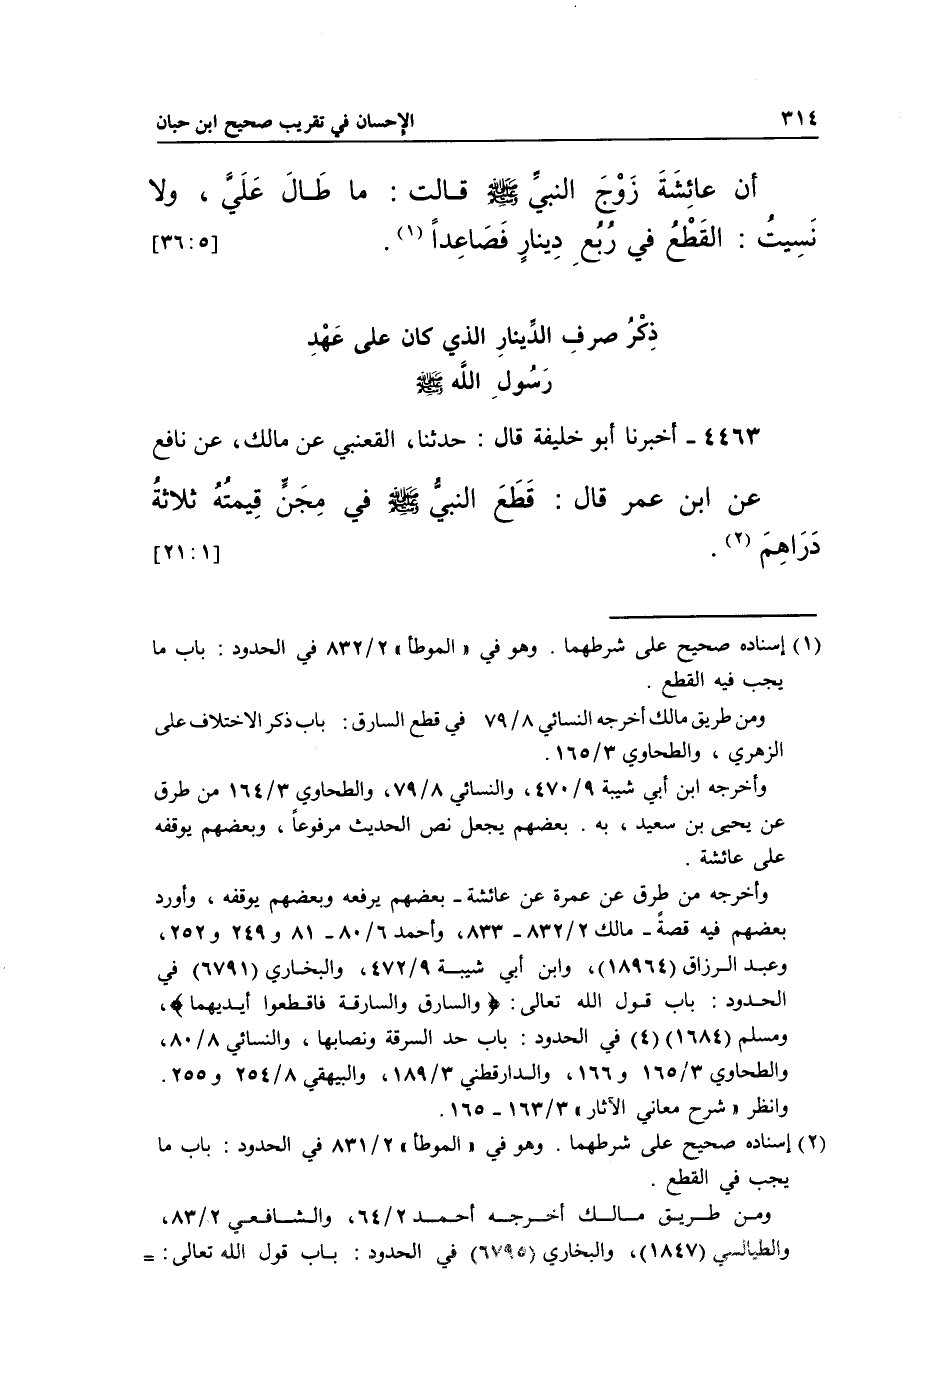 ٣١٤ الإحسان في تقريب صحيح ابن حبان
أن عائِشَةَ زَوْجَ النبيِّ ﷺ قالت : ما طَالَ عَلَيَّ ، ولا
نَسِيتُ : القَطْعُ في رُبُعِ دِينارٍ فَصَاعِداً (١) . [٥ : ٣٦]
ذِكْرُ صرفِ الدِّينارِ الذي كان على عَهْدِ
رَسُولِ اللَّه ﷺ
٤٤٦٣ ـ أخبرنا أبو خليفة قال : حدثنا، القعنبي عن مالك، عن نافع
عن ابن عمر قال : قَطَعَ النبيُّ ﷺ في مِجَنٍّ قِيمتُهُ ثلاثةُ
دَرَاهِمَ (٢) . [١ : ٢١]
(١) إسناده صحيح على شرطهما . وهو في « الموطأ » ٨٣٢/٢ في الحدود : باب ما
يجب فيه القطع .
ومن طريق مالك أخرجه النسائي ٧٩/٨ في قطع السارق : باب ذكر الاختلاف على
الزهري ، والطحاوي ١٦٥/٣ .
وأخرجه ابن أبي شيبة ٤٧٠/٩ ، والنسائي ٧٩/٨، والطحاوي ١٦٤/٣ من طرق
عن يحيى بن سعيد ، به . بعضهم يجعل نص الحديث مرفوعاً ، وبعضهم يوقفه
على عائشة .
وأخرجه من طرق عن عمرة عن عائشة ـ بعضهم يرفعه وبعضهم يوقفه ، وأورد
بعضهم فيه قصةً ـ مالك ٨٣٢/٢ ـ ٨٣٣، وأحمد ٨٠/٦ ـ ٨١ و ٢٤٩ و ٢٥٢،
وعبد الرزاق (١٨٩٦٤)، وابن أبي شيبة ٤٧٢/٩، والبخاري (٦٧٩١) في
الحدود : باب قول الله تعالى : ﴿ والسارق والسارقة فاقطعوا أيديهما ﴾،
ومسلم (١٦٨٤) (٤) في الحدود : باب حد السرقة ونصابها ، والنسائي ٨٠/٨،
والطحاوي ١٦٥/٣ و ١٦٦، والدارقطني ١٨٩/٣، والبيهقي ٢٥٤/٨ و ٢٥٥ .
وانظر « شرح معاني الآثار » ١٦٣/٣ ـ ١٦٥ .
(٢) إسناده صحيح على شرطهما . وهو في « الموطأ » ٨٣١/٢ في الحدود : باب ما
يجب في القطع .
ومن طريق مالك أخرجه أحمد ٦٤/٢، والشافعي ٨٣/٢،
والطيالسي (١٨٤٧)، والبخاري (٦٧٩٥) في الحدود : باب قول الله تعالى : =